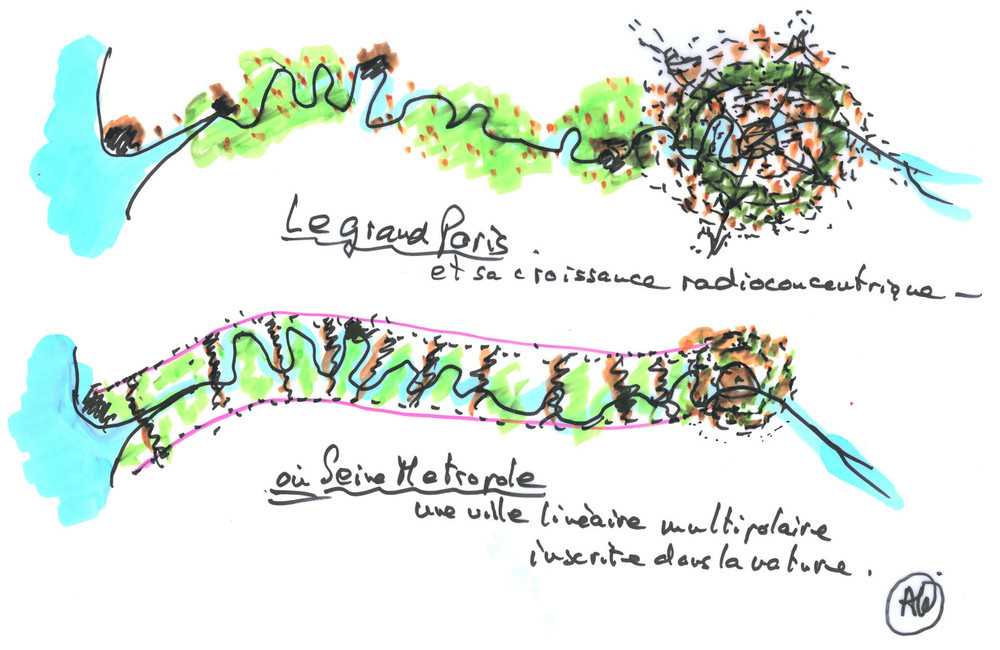 Le grand Paris.
et sa croissance radioconcentrique -
où Seine Metropole
une ville linéaire multipolaire
inscrite dans la nature.
AG